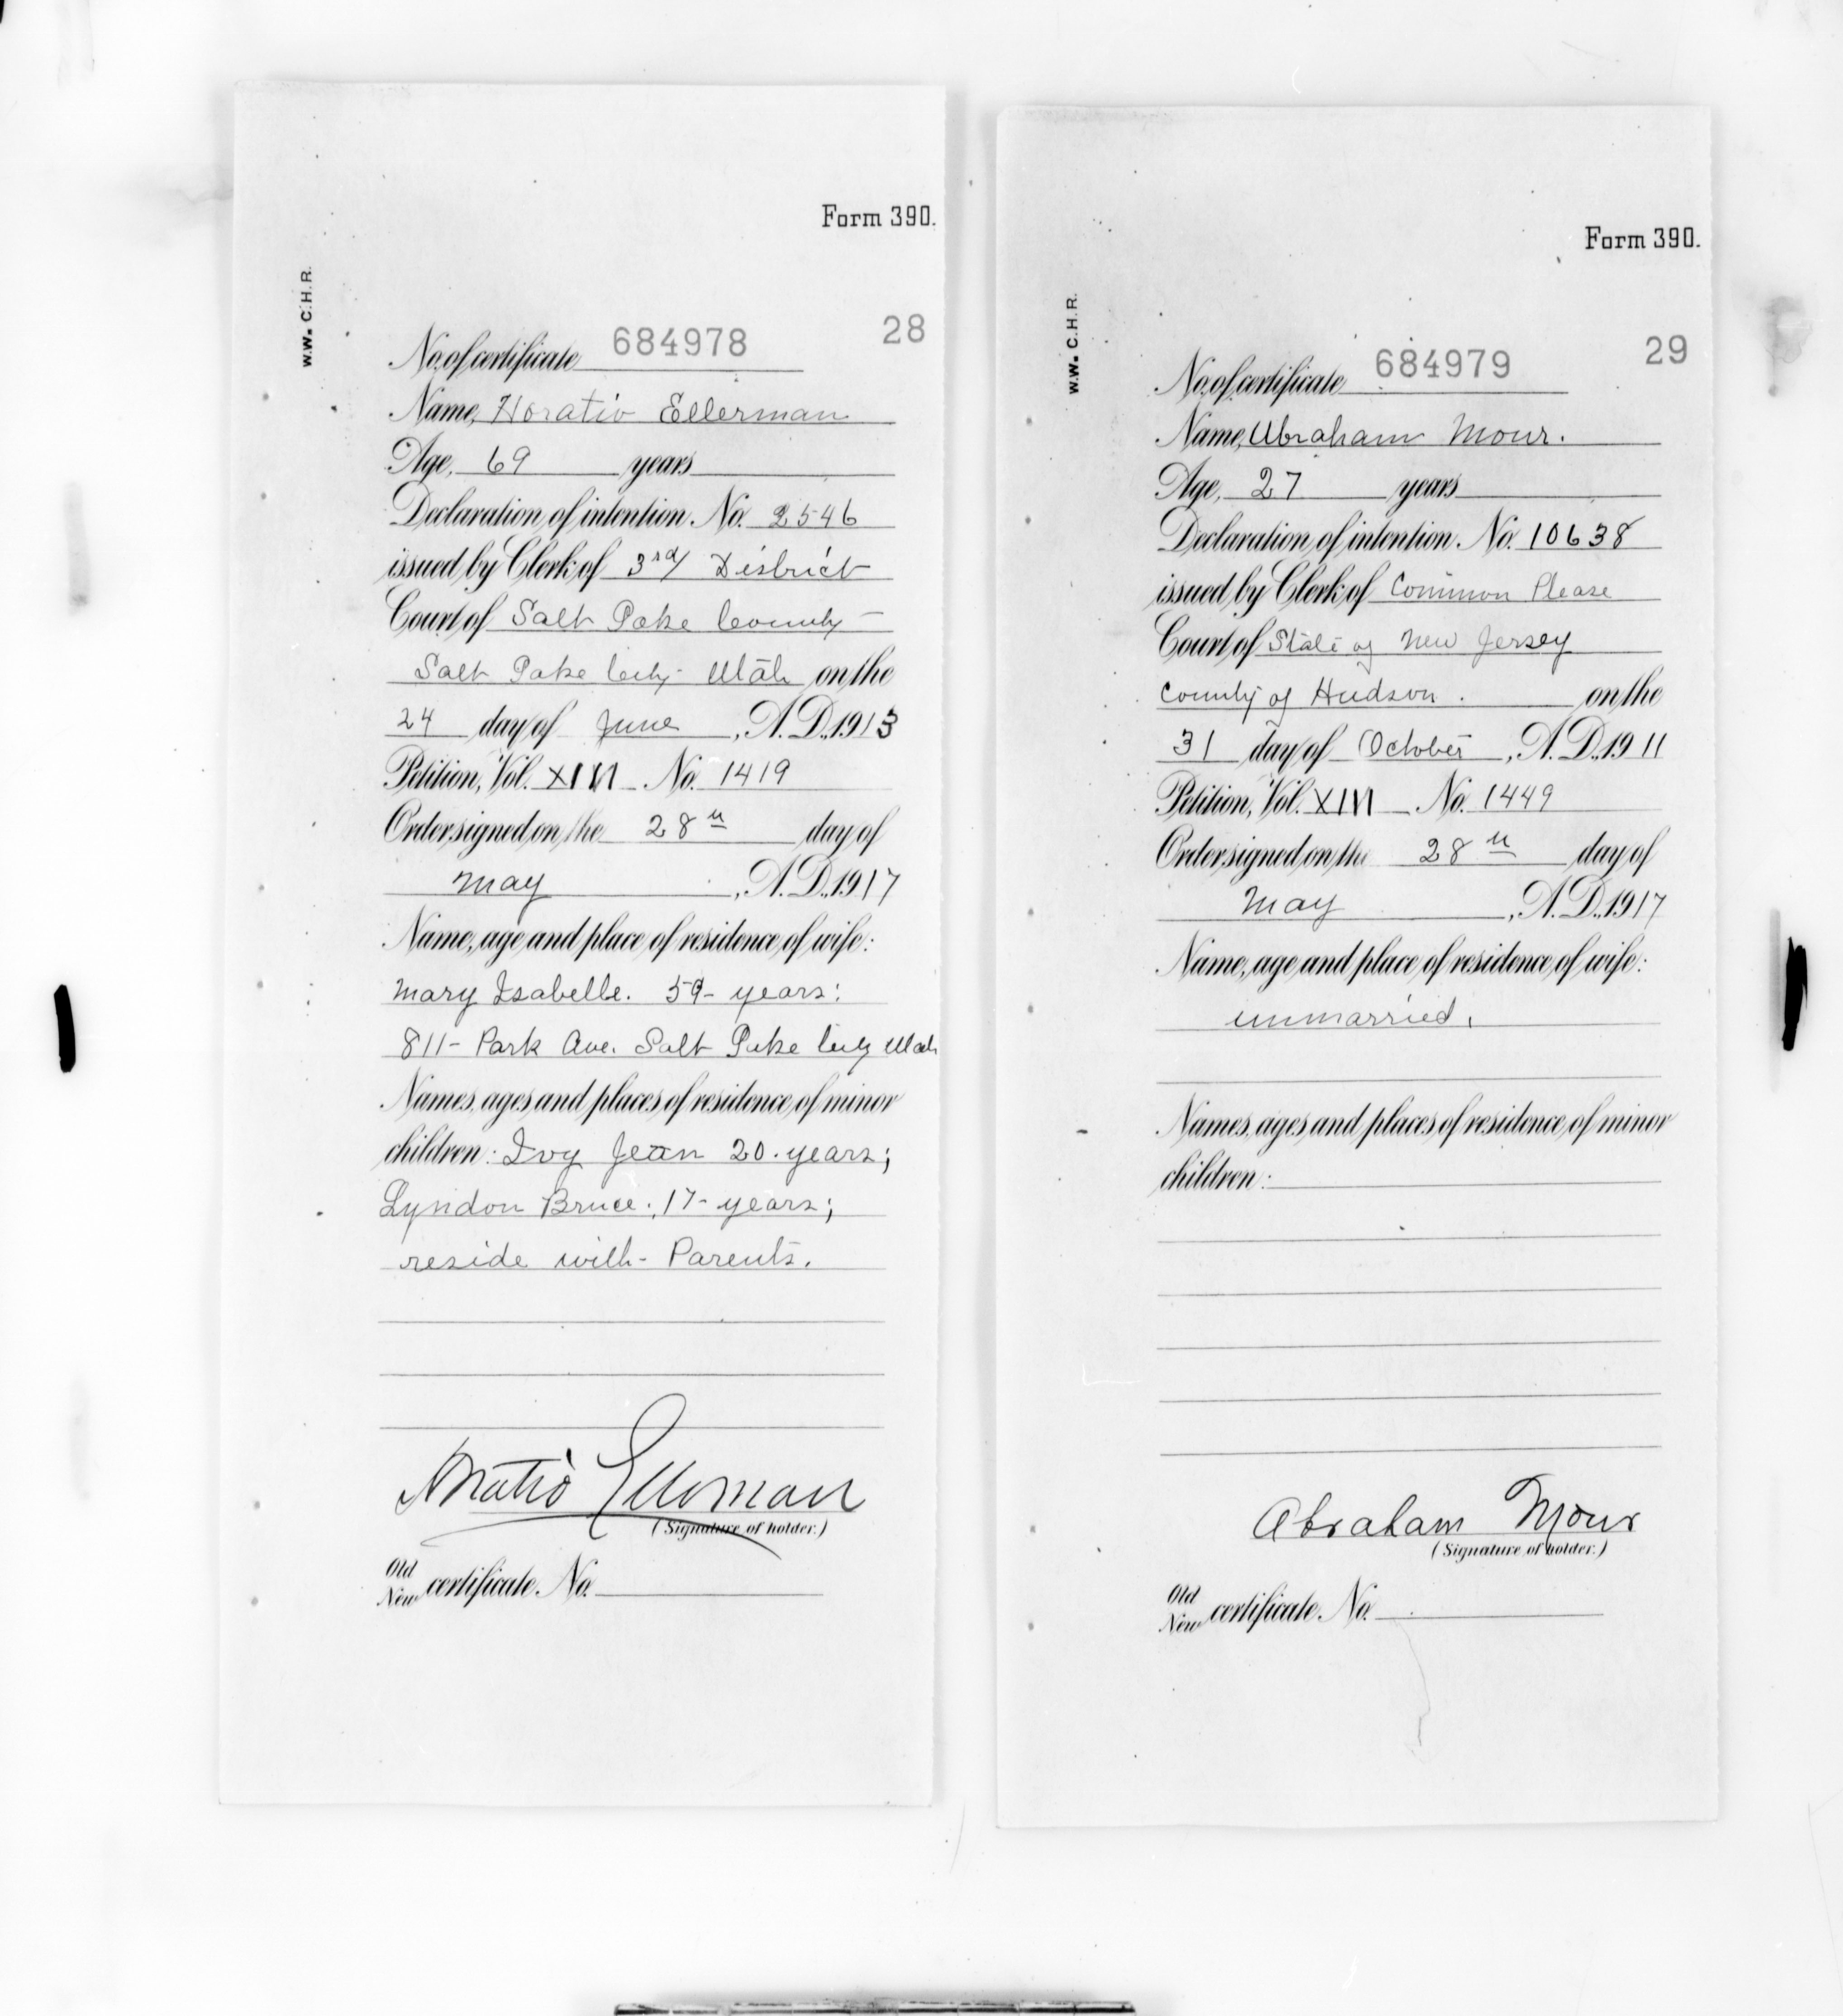 Form 390.
W.W. C.H.R.
28
No. of certificate 684978
Name, Horatio Ellerman
Age, 69 years
Declaration of intention No. 2546
issued by Clerk of 3rd District
Court of Salt Lake County
Salt Lake City Utah on the
24 day of June, A. D. 1913
Petition, Vol. No. 1419
Order signed on the 28 day of
May, A. D. 1917
Name, age and place of residence of wife:
Mary Isabelle. 59- years:
811- Park Ave. Salt Lake City Utah
Names, ages and places of residence of minor
children: Ivy Jean 20. years;
Lyndon Bruce:, 17- years;
reside with- Parents.
Horatio Ellerman
(Signature of holder.)
Old
New certificate No.
Form 390.
W.W. C.H.R.
29
No. of certificate 684979
Name, Abraham Mour.
Age, 27 years
Declaration of intention No. 10638
issued by Clerk of Common Please
Court of State of New Jersey
County of Hudson. on the
31 day of October, A. D. 1911
Petition, Vol. No. 1449
Order signed on the 28 day of
May, A. D. 1917
Name, age and place of residence of wife:
unmarried.
Names, ages and places of residence of minor
children:
Abraham Mour
(Signature of holder.)
Old
New certificate No.